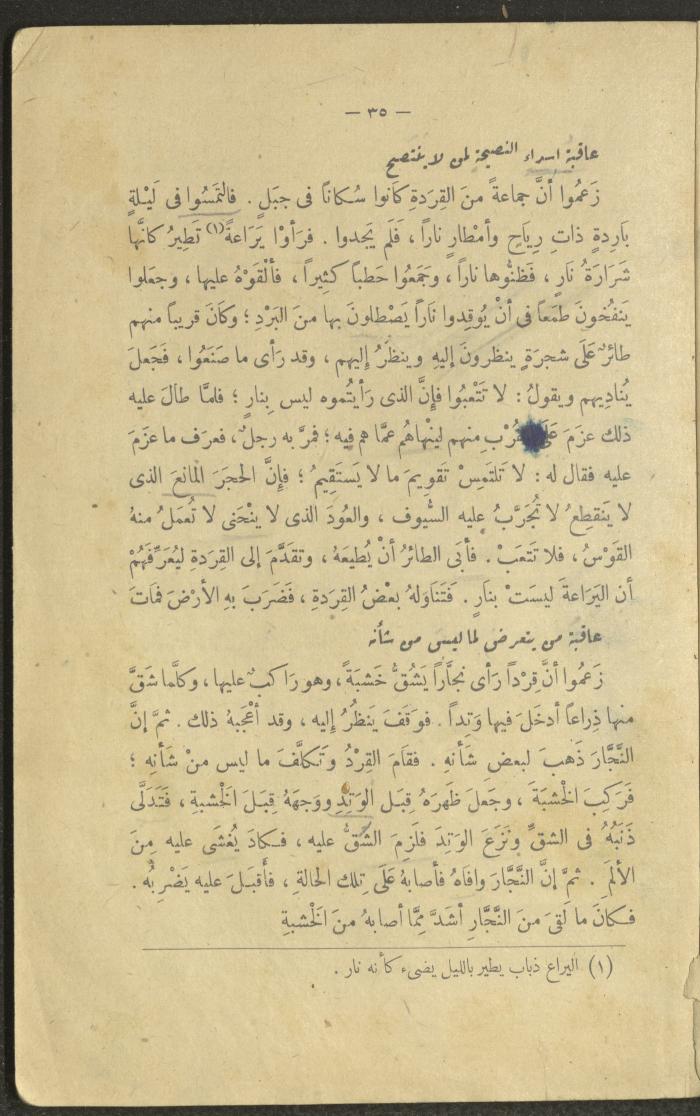 — ٣٥ —
عاقبة اسداء النصيحة لمن لا ينتصح
زَعَمُوا أنَّ جماعةً منَ القِرَدةِ كَانوا سُكانًا فى جبَلٍ . فالتَمَسُوا فى لَيْلةٍ
بَاردةٍ ذاتِ رِيَاحٍ وأمْطارٍ ناراً ، فَلَم يَجدوا . فرَأوْا يَرَاعةً (١) تَطيرُ كانَّها
شَرَارَةُ نَارٍ ، فَظنُّوها ناراً ، وجَمَعُوا حَطباً كثِيراً ، فألْقَوْهُ عليها ، وجعَلوا
يَنفُخُونَ طمَعاً فى أنْ يُوقِدوا نَاراً يَصْطلونَ بها منَ البَرْدِ ؛ وكَانَ قريباً منهم
طائرٌ عَلَى شجرَةٍ ينظرونَ إليهِ وينظرُ إليهم ، وقد رَأى ما صَنَعُوا ، فَجَعلَ
يُنادِيهم ويقولُ : لا تَتْعَبُوا فإنَّ الذى رَأيتُموه ليس بِنارٍ ؛ فلمَّا طالَ عليه
ذلك عزَمَ عَلَى القُرْبِ منهم لينْهاهُم عمَّا هم فيه ؛ فمرَّ به رجلٌ ، فعرَف ما عزَمَ
عليه فقال له : لا تَلتَمِسْ تَقويمَ ما لا يَستَقِيمُ ؛ فإنَّ الحجَرَ المانعَ الذى
لا يَنقطِعُ لا تُجَرَّبُ عليه السُّيوف ، والعُودَ الذى لا ينْحَنى لا تُعمَلُ منهُ
القَوْسُ ، فلا تَتعَبْ . فأبَى الطائرُ أنْ يُطيعَهُ ، وتقدَّمَ إلى القِردةِ ليُعَرِّفَهُمْ
أن اليَرَاعةَ ليسَتْ بنارٍ . فَتَناوَلهُ بعْضُ القِردةِ ، فَضَرَبَ بهِ الأرْضَ فمَاتَ
عاقبة من يتعرض لما ليس من شأنه
زَعَمُوا أنَّ قِرْداً رَأى نجَّاراً يَشُقُّ خَشبَةً ، وهو رَاكبٌ عليها ، وكلَّما شَقَّ
منها ذِراعاً أدخَلَ فيها وَتِداً . فوَقَفَ يَنظُرُ إليه ، وقد أعْجَبهُ ذلك . ثمَّ إنَّ
النَّجَّارَ ذَهبَ لبعض شَأنهِ . فقامَ القِرْدُ وتَكلَّفَ ما ليس منْ شَأنِهِ ؛
فَرَكِبَ الخْشبَةَ ، وجَعلَ ظهْرَهُ قِبَل الوَتِدِ ووَجهَهُ قِبَلَ الخْشبةِ ، فتَدَلَّى
ذَنَبُهُ فى الشقِّ ونَزَعَ الوَتِدَ فلَزِمَ الشَّقُّ عليه ، فكادَ يُغْشَى عليه مِنَ
الألَمِ . ثمَّ إنَّ النَّجَّارَ وافَاهُ فأصابهُ عَلَى تِلك الحالةِ ، فأقبَلَ عليه يَضْرِبُه .
فكانَ ما لَقىَ منَ النَّجَّارِ أشَدَّ مِمَّا أصابهُ منَ الخْشبةِ
(١) اليراع ذباب يطير بالليل يضىء كأنه نار .